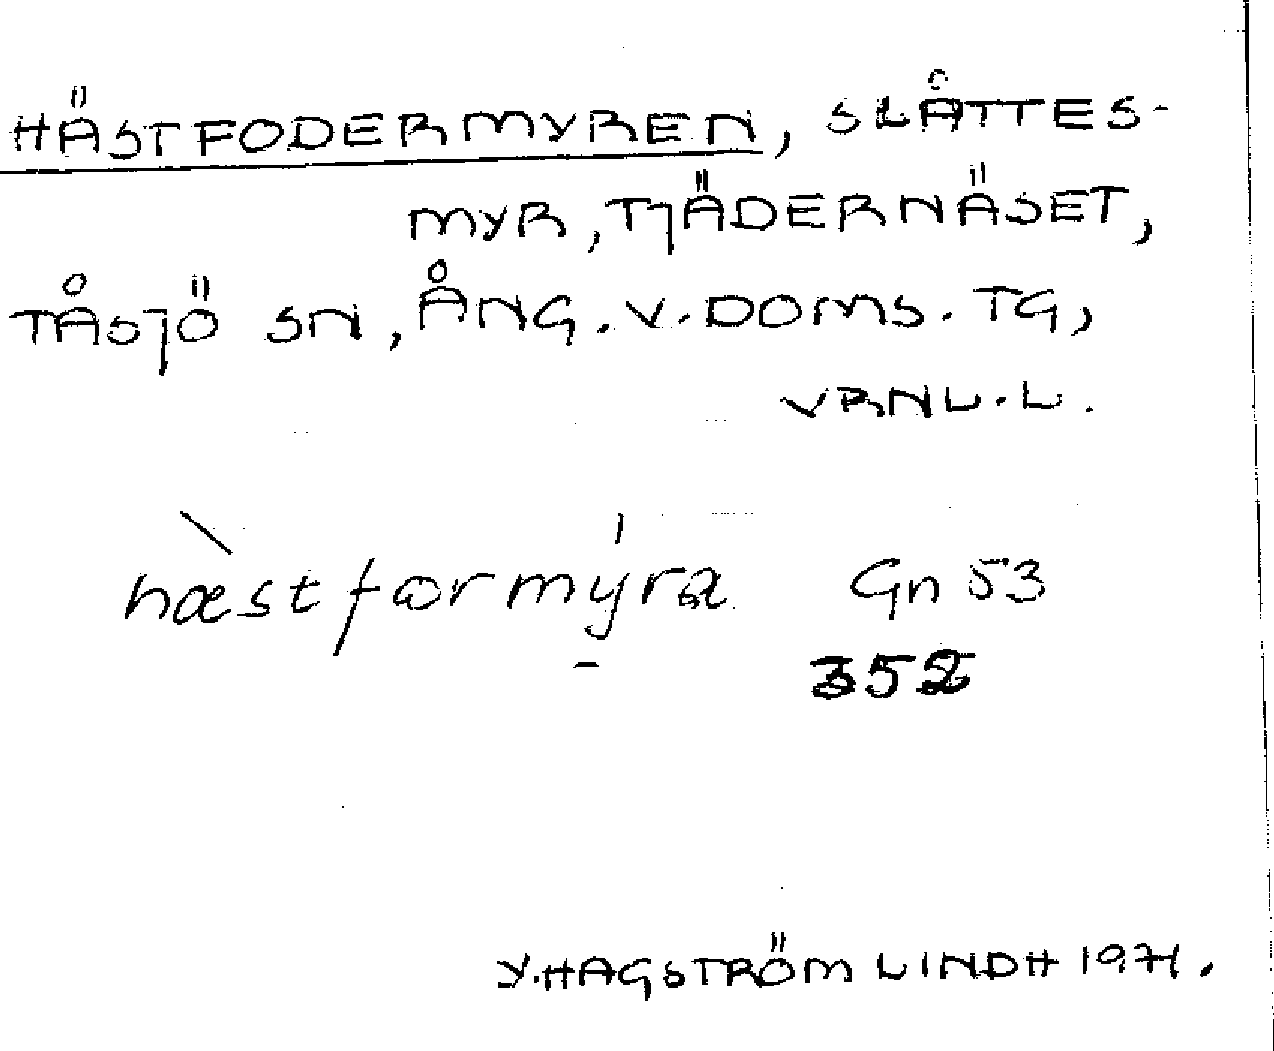 HÄSTFODERMYREN, SLÅTTES-
MYR, TJÄDERNÄSET,
TÅSJÖ SN, ÅNG. V. DOMS. TG,
VRNL. L.
hæstfормýra Gn 53
352
Y. HAGSTRÖM LINDH 1971.